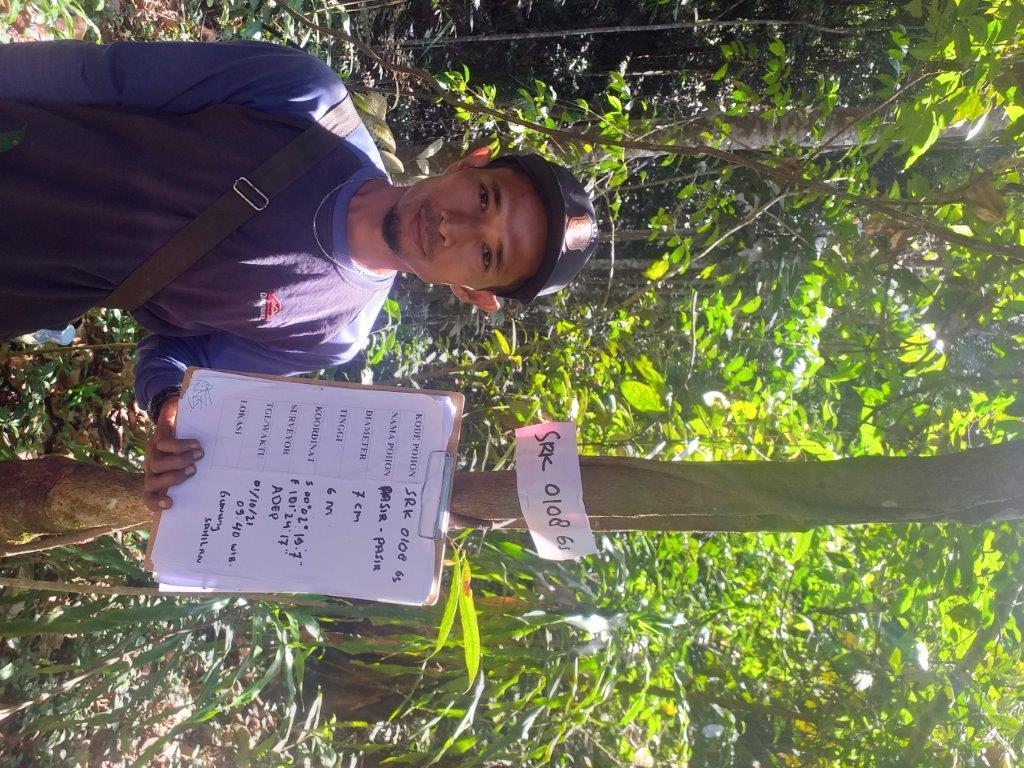 SRK 0108 GS
KODE POHON SRK 0108 GS
NAMA POHON PASIR - PASIR
DIAMETER 7 CM
TINGGI 6 M
KOORDINAT S 00°02°19.7"
E 101°24'17"
SURVEYOR ADEP
TGL/WAKTU 01/10/21
09.40 WIB.
LOKASI Gunung
SAHILAN